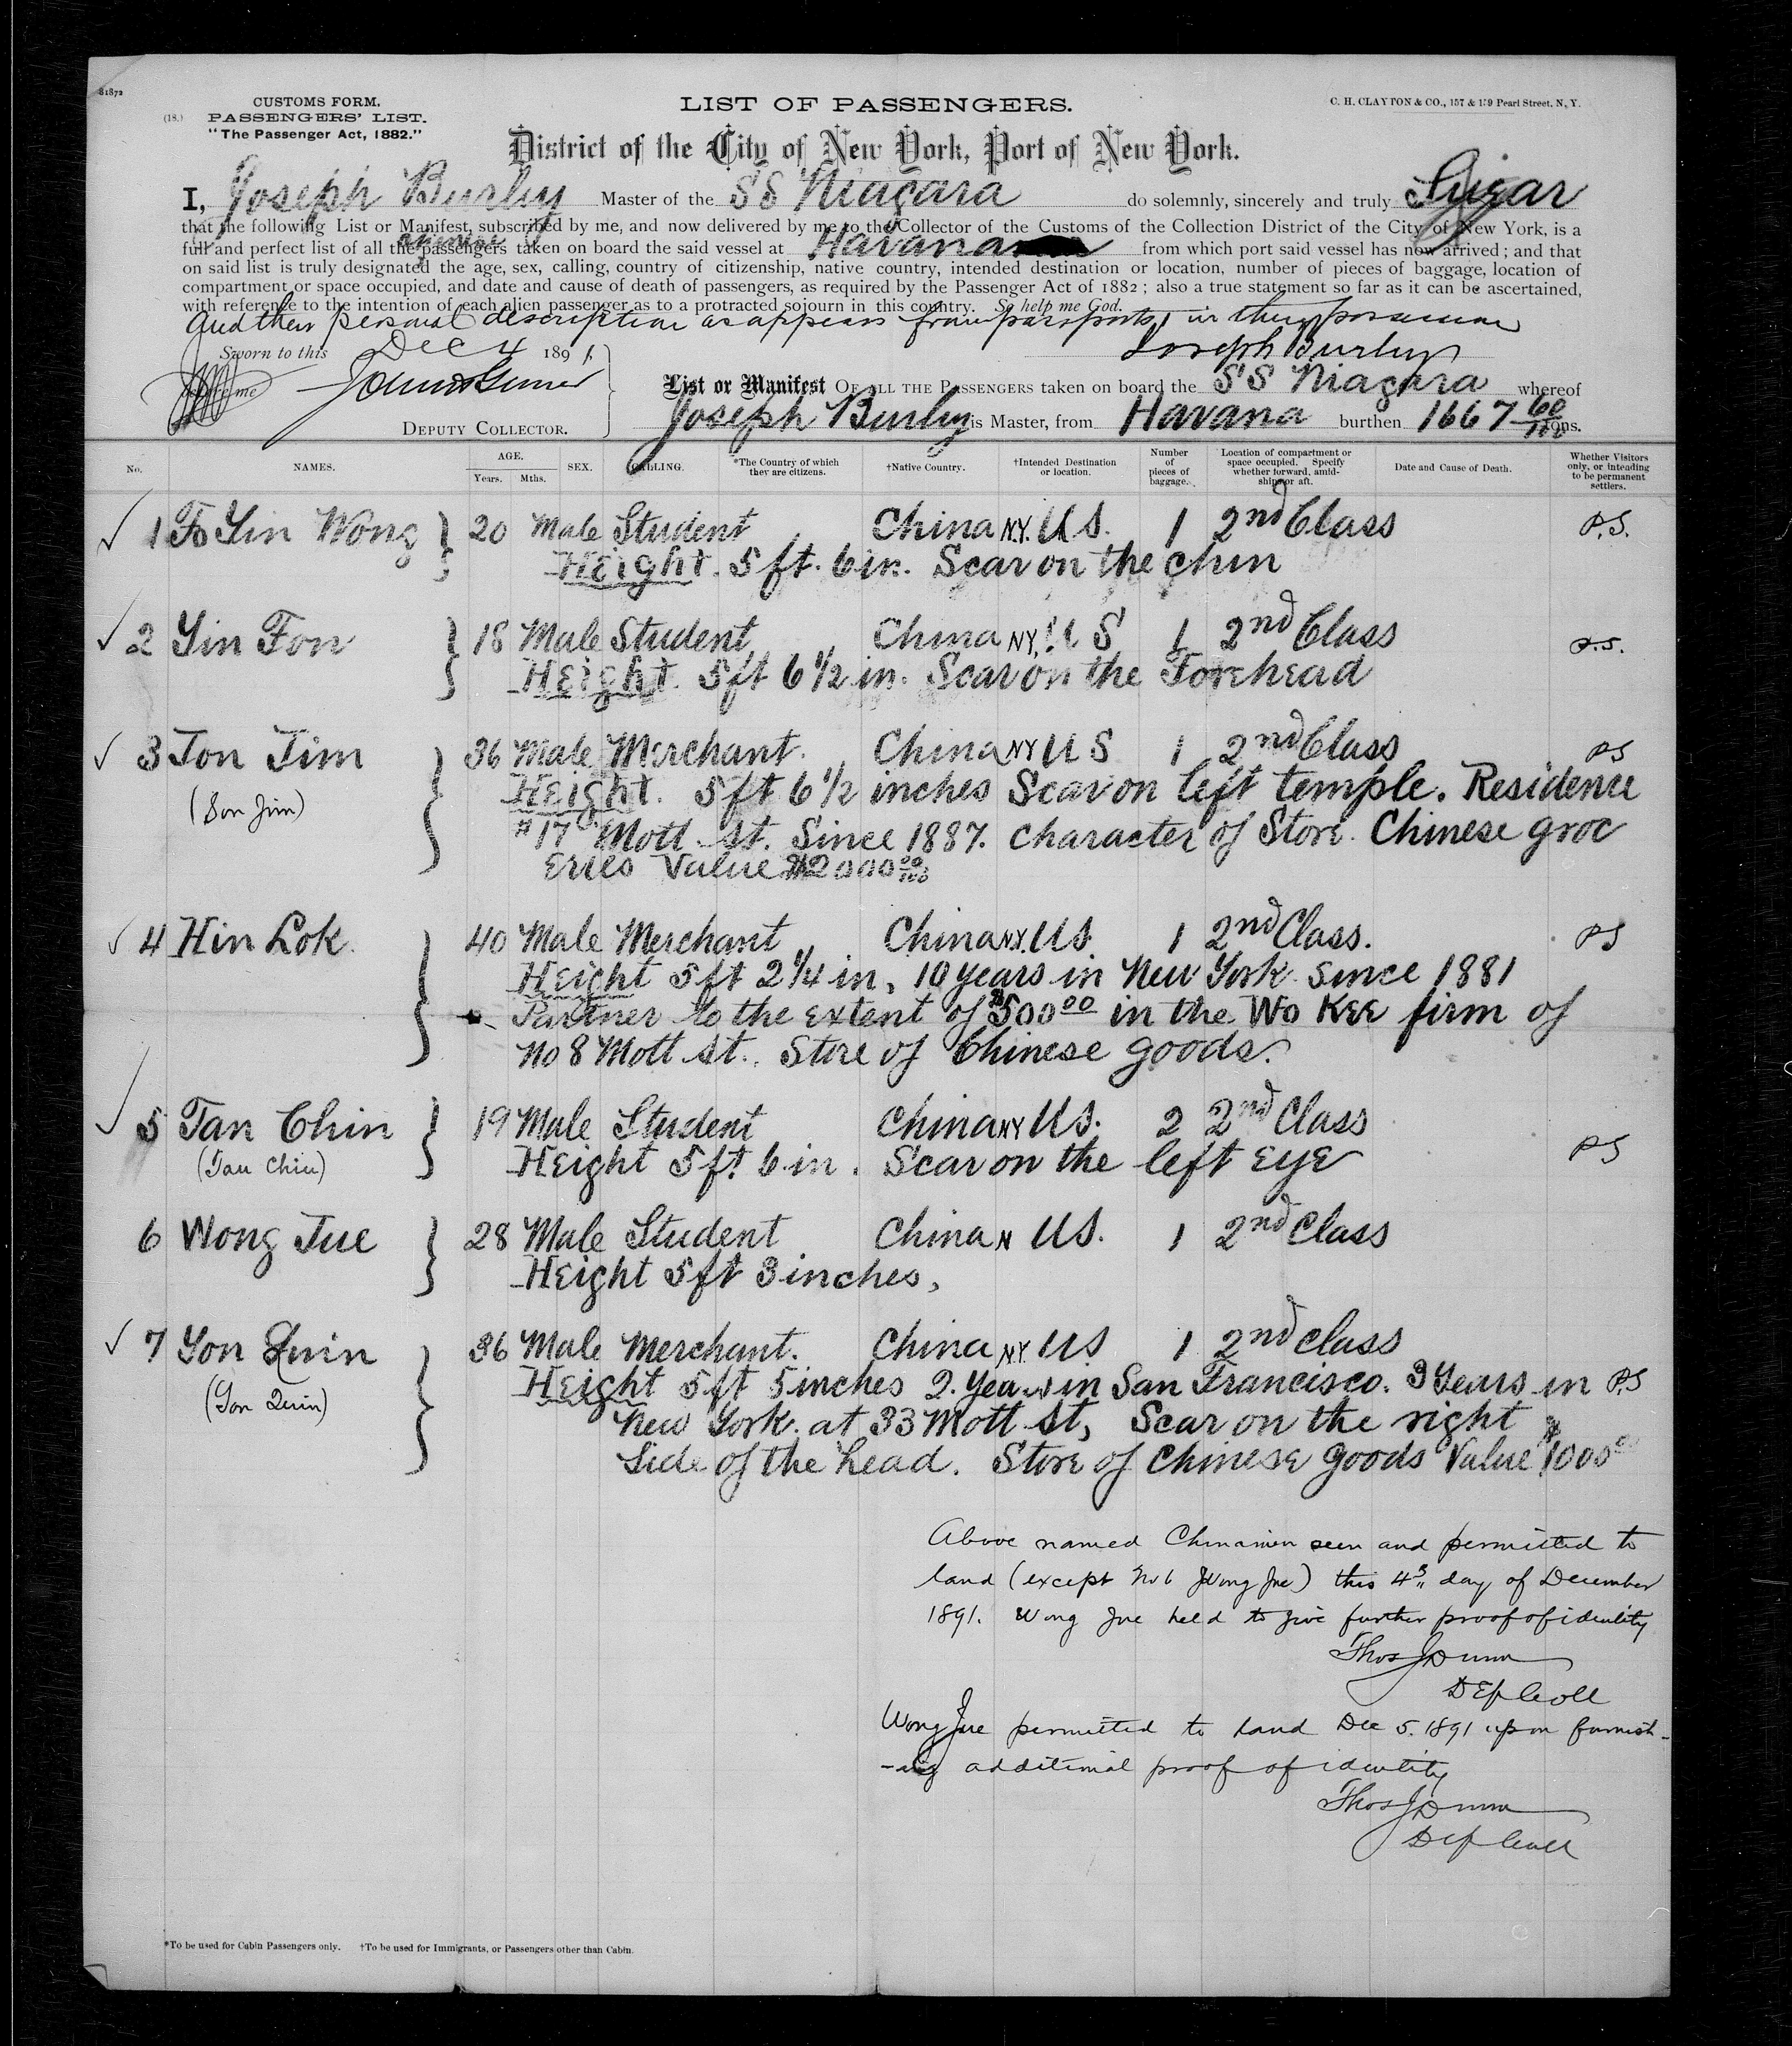 81872
CUSTOMS FORM.
(18.) PASSENGERS' LIST.
"The Passenger Act, 1882."
LIST OF PASSENGERS.
C. H. CLAYTON & CO., 157 & 159 Pearl Street, N. Y.
District of the City of New York, Port of New York.
I, Joseph Burley Master of the SS Niagara do solemnly, sincerely and truly Swear
that the following List or Manifest, subscribed by me, and now delivered by me to the Collector of the Customs of the Collection District of the City of New York, is a
full and perfect list of all the Chinese passengers taken on board the said vessel at Havana from which port said vessel has now arrived; and that
on said list is truly designated the age, sex, calling, country of citizenship, native country, intended destination or location, number of pieces of baggage, location of
compartment or space occupied, and date and cause of death of passengers, as required by the Passenger Act of 1882; also a true statement so far as it can be ascertained,
with reference to the intention of each alien passenger as to a protracted sojourn in this country. So help me God.
and their personal description as appears from passports in their possession
Sworn to this Dec 4 1891
Joseph Burley
me
List or Manifest OF ALL THE PASSENGERS taken on board the SS Niagara whereof
DEPUTY COLLECTOR.
Joseph Burley is Master, from Havana burthen 1667 60/100 tons.
No. NAMES. AGE. Years. Mths. SEX. CALLING. *The Country of which they are citizens. †Native Country. †Intended Destination or location. Number of pieces of baggage. Location of compartment or space occupied. Specify whether forward, amidships or aft. Date and Cause of Death. Whether Visitors only, or intending to be permanent settlers.
1 Fo Yin Wong } 20 Male Student China N.Y. U S. 1 2nd Class P.S.
Height. 5 ft. 6 in. Scar on the chin
2 Yin Fon } 18 Male Student China NY, U S 1 2nd Class P.S.
Height. 5 ft 6 1/2 in. Scar on the Forehead
3 Jon Jim } 36 Male Merchant. China NY U S 1 2nd Class PS
(Son Jim) Height. 5 ft 6 1/2 inches Scar on left temple. Residence
#17 Mott St. Since 1887. character of Store. Chinese groc
eries Value $2000 00/100
4 Hin Lok } 40 Male Merchant China N.Y. U S. 1 2nd Class. PS
Height 5 ft 2 1/4 in, 10 years in New York since 1881
Partner to the extent of $500 00 in the Wo Kee firm of
No 8 Mott St. Store of Chinese goods.
5 Tan Chin } 19 Male Student China NY U S. 2 2nd Class
(Tan Chin) Height 5 ft 6 in. Scar on the left eye PS
6 Wong Jue } 28 Male Student China N U S. 1 2nd Class
Height 5 ft 3 inches,
7 Yon Quin } 36 Male Merchant. China N.Y. U S 1 2nd class
(Yon Quin) Height 5 ft 5 inches 2. Years in San Francisco. 3 Years in P.S
New York. at 33 Mott St, Scar on the right
Side of the head. Store of Chinese goods Value $1000 00
Above named Chinamen seen and permitted to
land (except No 6 Wong Jue) this 4th day of December
1891. Wong Jue held to give further proof of identity
Thos J Dunn
Dep Coll
Wong Jue permitted to land Dec 5. 1891 upon furnish-
-ing additional proof of identity
Thos J Dunn
Dep Coll
*To be used for Cabin Passengers only. †To be used for Immigrants, or Passengers other than Cabin.